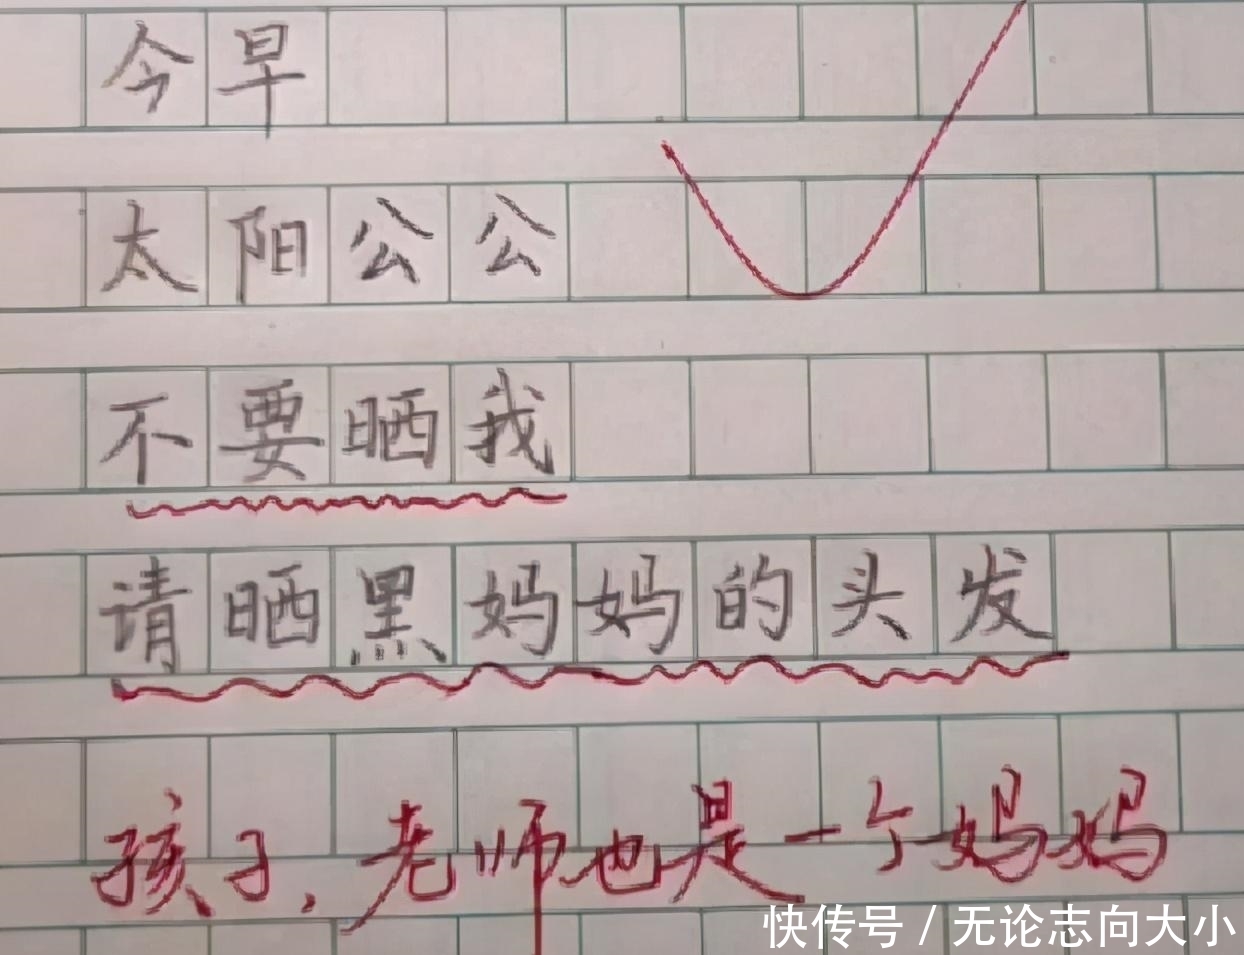 今早
太阳公公
不要晒我
请晒黑妈妈的头发
孩子，老师也是一个妈妈
快传号 / 无论志向大小